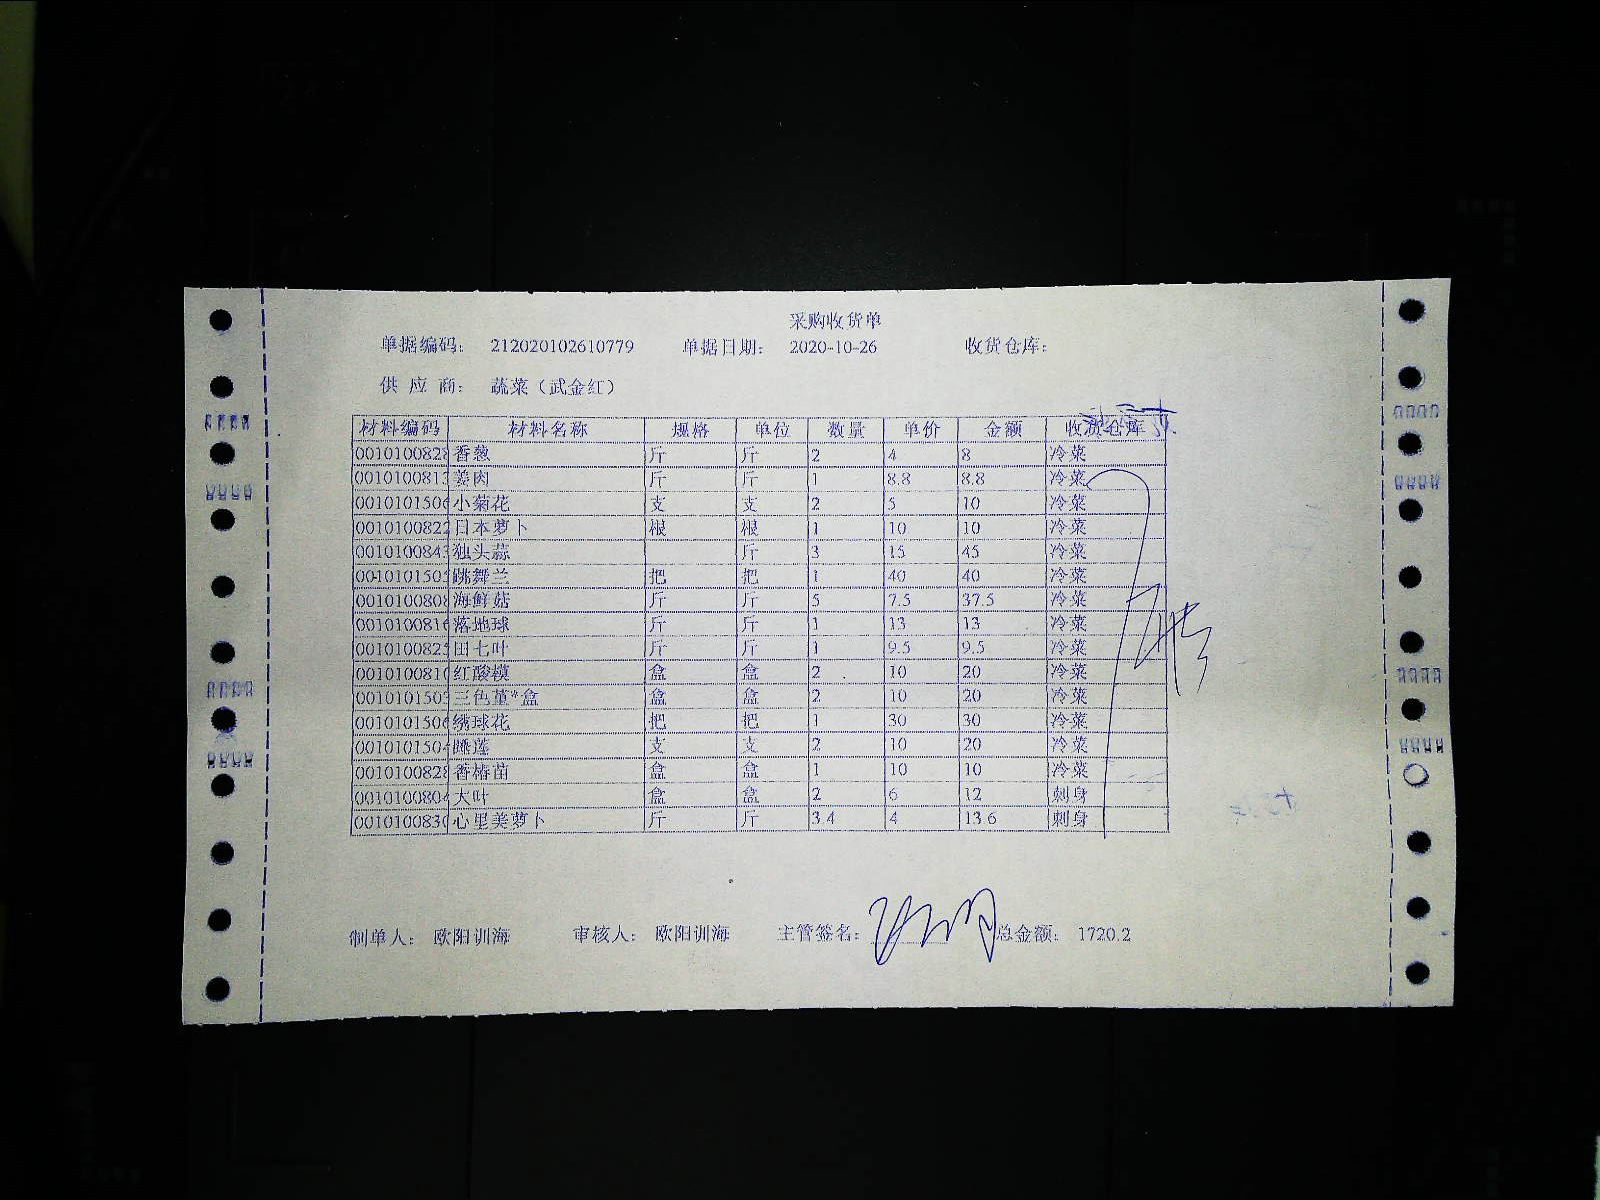 采购收货单
单据编码： 212020102610779 单据日期： 2020-10-26 收货仓库：
供 应 商： 蔬菜（武金红）
材料编码 材料名称 规格 单位 数量 单价 金额 收货仓库
0010100828 香葱 斤 斤 2 4 8 冷菜
001010081 姜肉 斤 斤 1 8.8 8.8 冷菜
001010150 小菊花 支 支 2 5 10 冷菜
001010082 日本萝卜 根 根 1 10 10 冷菜
001010084 独头蒜 斤 3 15 45 冷菜
001010150 跳舞兰 把 把 1 40 40 冷菜
001010080 海鲜菇 斤 斤 5 7.5 37.5 冷菜
001010081 落地球 斤 斤 1 13 13 冷菜
001010082 田七叶 斤 斤 1 9.5 9.5 冷菜
001010081 红酸模 盒 盒 2 10 20 冷菜
001010150 三色堇*盒 盒 盒 2 10 20 冷菜
001010150 绣球花 把 把 1 30 30 冷菜
001010150 睡莲 支 支 2 10 20 冷菜
001010082 香椿苗 盒 盒 1 10 10 冷菜
001010080 大叶 盒 盒 2 6 12 刺身
001010083 心里美萝卜 斤 斤 3.4 4 13.6 刺身
制单人： 欧阳训海 审核人： 欧阳训海 主管签名： 总金额： 1720.2